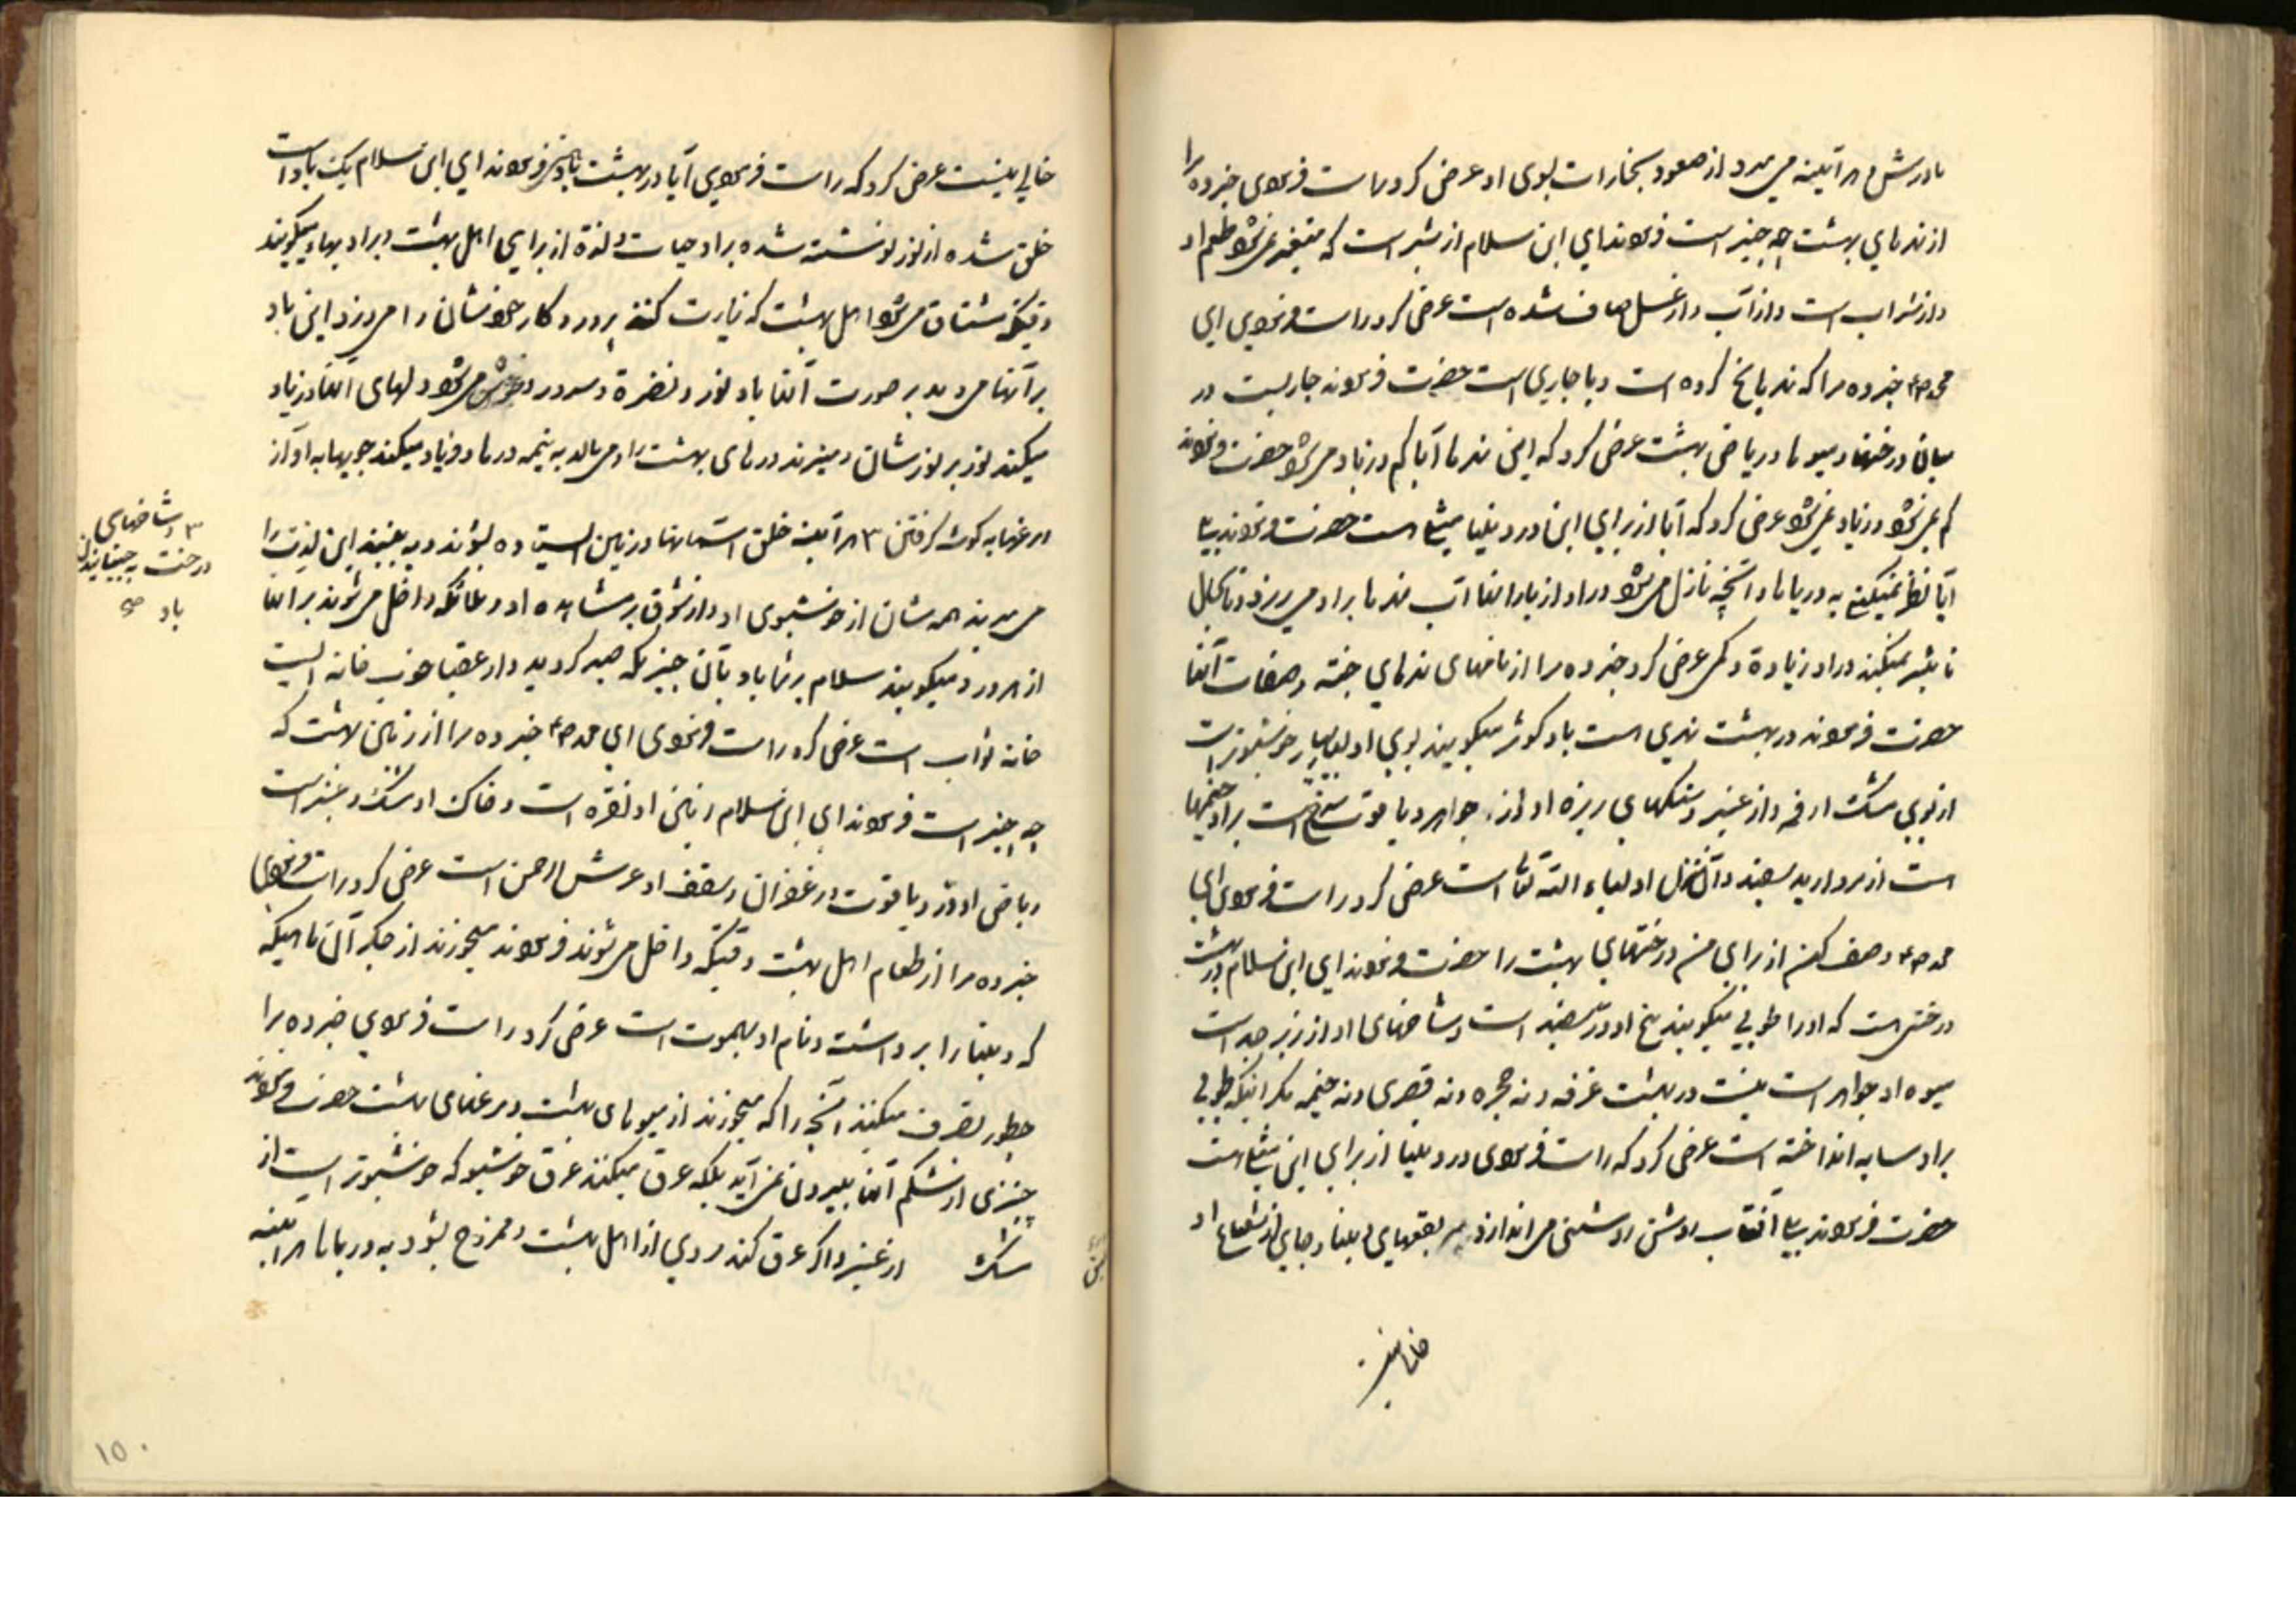 تا درش هر آینه می میرد از صعود بخارات بوی او عرض کرد راست فرمودی خبر ده مرا
از نهرهای بهشت چه چیز است فرمودند ای ابن سلام از شیر است که متغیر نمیشود طعم او
و از شراب است و از آب و از عسل صاف شده است عرض کرد راست فرمودی ای
محمد ص خبر ده مرا که نهر یا یخ کرده است و یا جاری است حضرت فرمودند جاریست در
میان درختها و میوها و ریاض بهشت عرض کرد که این نهرها آیا کم و زیاد میشود حضرت فرمودند
کم نمیشود و زیاد نمیشود عرض کرد که آیا از برای این در دنیا مثل هست حضرت فرمودند بلی
آیا نظر نمیکنی به دریاها و آنچه نازل میشود در او از بارانها و آب نهرها بر او میریزد
تاثیر نمیکند در او زیادة و کمی عرض کرد خبر ده مرا از نامهای نهرهای جنة و صفات آنها
حضرت فرمودند در بهشت نهری است باو کوثر میگویند بوی او بسیار خوشبوتر است
از بوی مشک اذفر و از عنبر و سنگهای ریزه او از جواهر و یاقوت سرخ است بر او خیمها
است از مروارید سفید و آن منزل اولیاء الله تعالی است عرض کرد راست فرمودی ای
محمد ص وصف کن از برای من درختهای بهشت را حضرت فرمودند ای ابن سلام در بهشت
درختی است که او را طوبی میگویند بیخ او در سفید است و شاخهای او از زبرجد است
میوه او جواهر است نیست در بهشت غرفه و نه حجره و نه قصری و نه خیمه مگر اینکه طوبی
بر او سایه انداخته است عرض کرد که راست فرمودی در دنیا از برای این مثل هست
حضرت فرمودند بلی آفتاب روشن روشنی می اندازد بر بقعهای دنیا و جای از شعاع او
خالی نیست
خالی نیست عرض کرد که راست فرمودی آیا در بهشت باد هست فرمودند ای ابن سلام یک باد است
خلق شده از نور نوشته شده بر او حیات و لذة از برای اهل بهشت و بر او بهاء میگویند
وقتیکه مشتاق میشوند اهل بهشت که زیارت کنند پروردگار خودشان را میوزد این باد
بر آنها میدمد بر صورت آنها باد نور و نضرة و سرور و خوش میشود دلهای آنها و زیاد
میکند نور بر نورشان و میزند درهای بهشت را و می مالد به نیمه درها و فریاد میکند جویها به آواز
مرغها به گوش گرفتن ۳ هر آینه خلق آسمانها و زمین ایستاده بشوند و به بینند این لذت را
۳ و شاخهای
درخت به جنبانیدن
باد صح
می میرند همه شان از خوشبوی او و از شوق بر مشاهده او و ملائکه داخل میشوند بر آنها
از هر در و میگویند سلام بر شما باد بآن چیز که صبر کردید و از عقبا خوب خانه ایست
خانه ثواب است عرض کرد راست فرمودی ای محمد ص خبر ده مرا از زمین بهشت که
چه چیز است فرمودند ای ابن سلام زمین او نقره است و خاک او مشک و عنبر است
ریاض او در و یاقوت و زعفران و سقف او عرش الرحمن است عرض کرد راست فرمودی
خبر ده مرا از طعام اهل بهشت وقتیکه داخل میشوند فرمودند میخورند از جگر آن ماهیکه
که دنیا را برداشته و نام او بهموت است عرض کرد راست فرمودی خبر ده مرا
چطور تصرف میکنند آنچه را که میخورند از میوهای بهشت و مرغهای بهشت حضرت فرمودند
چیزی از شکم آنها بیرون نمی آید بلکه عرق میکنند عرق خوشبو که خوشبوتر است از
مشک و از عنبر و اگر عرق کند مردی از اهل بهشت و ممزوج بشود به دریاها هر آینه
۱۵۰